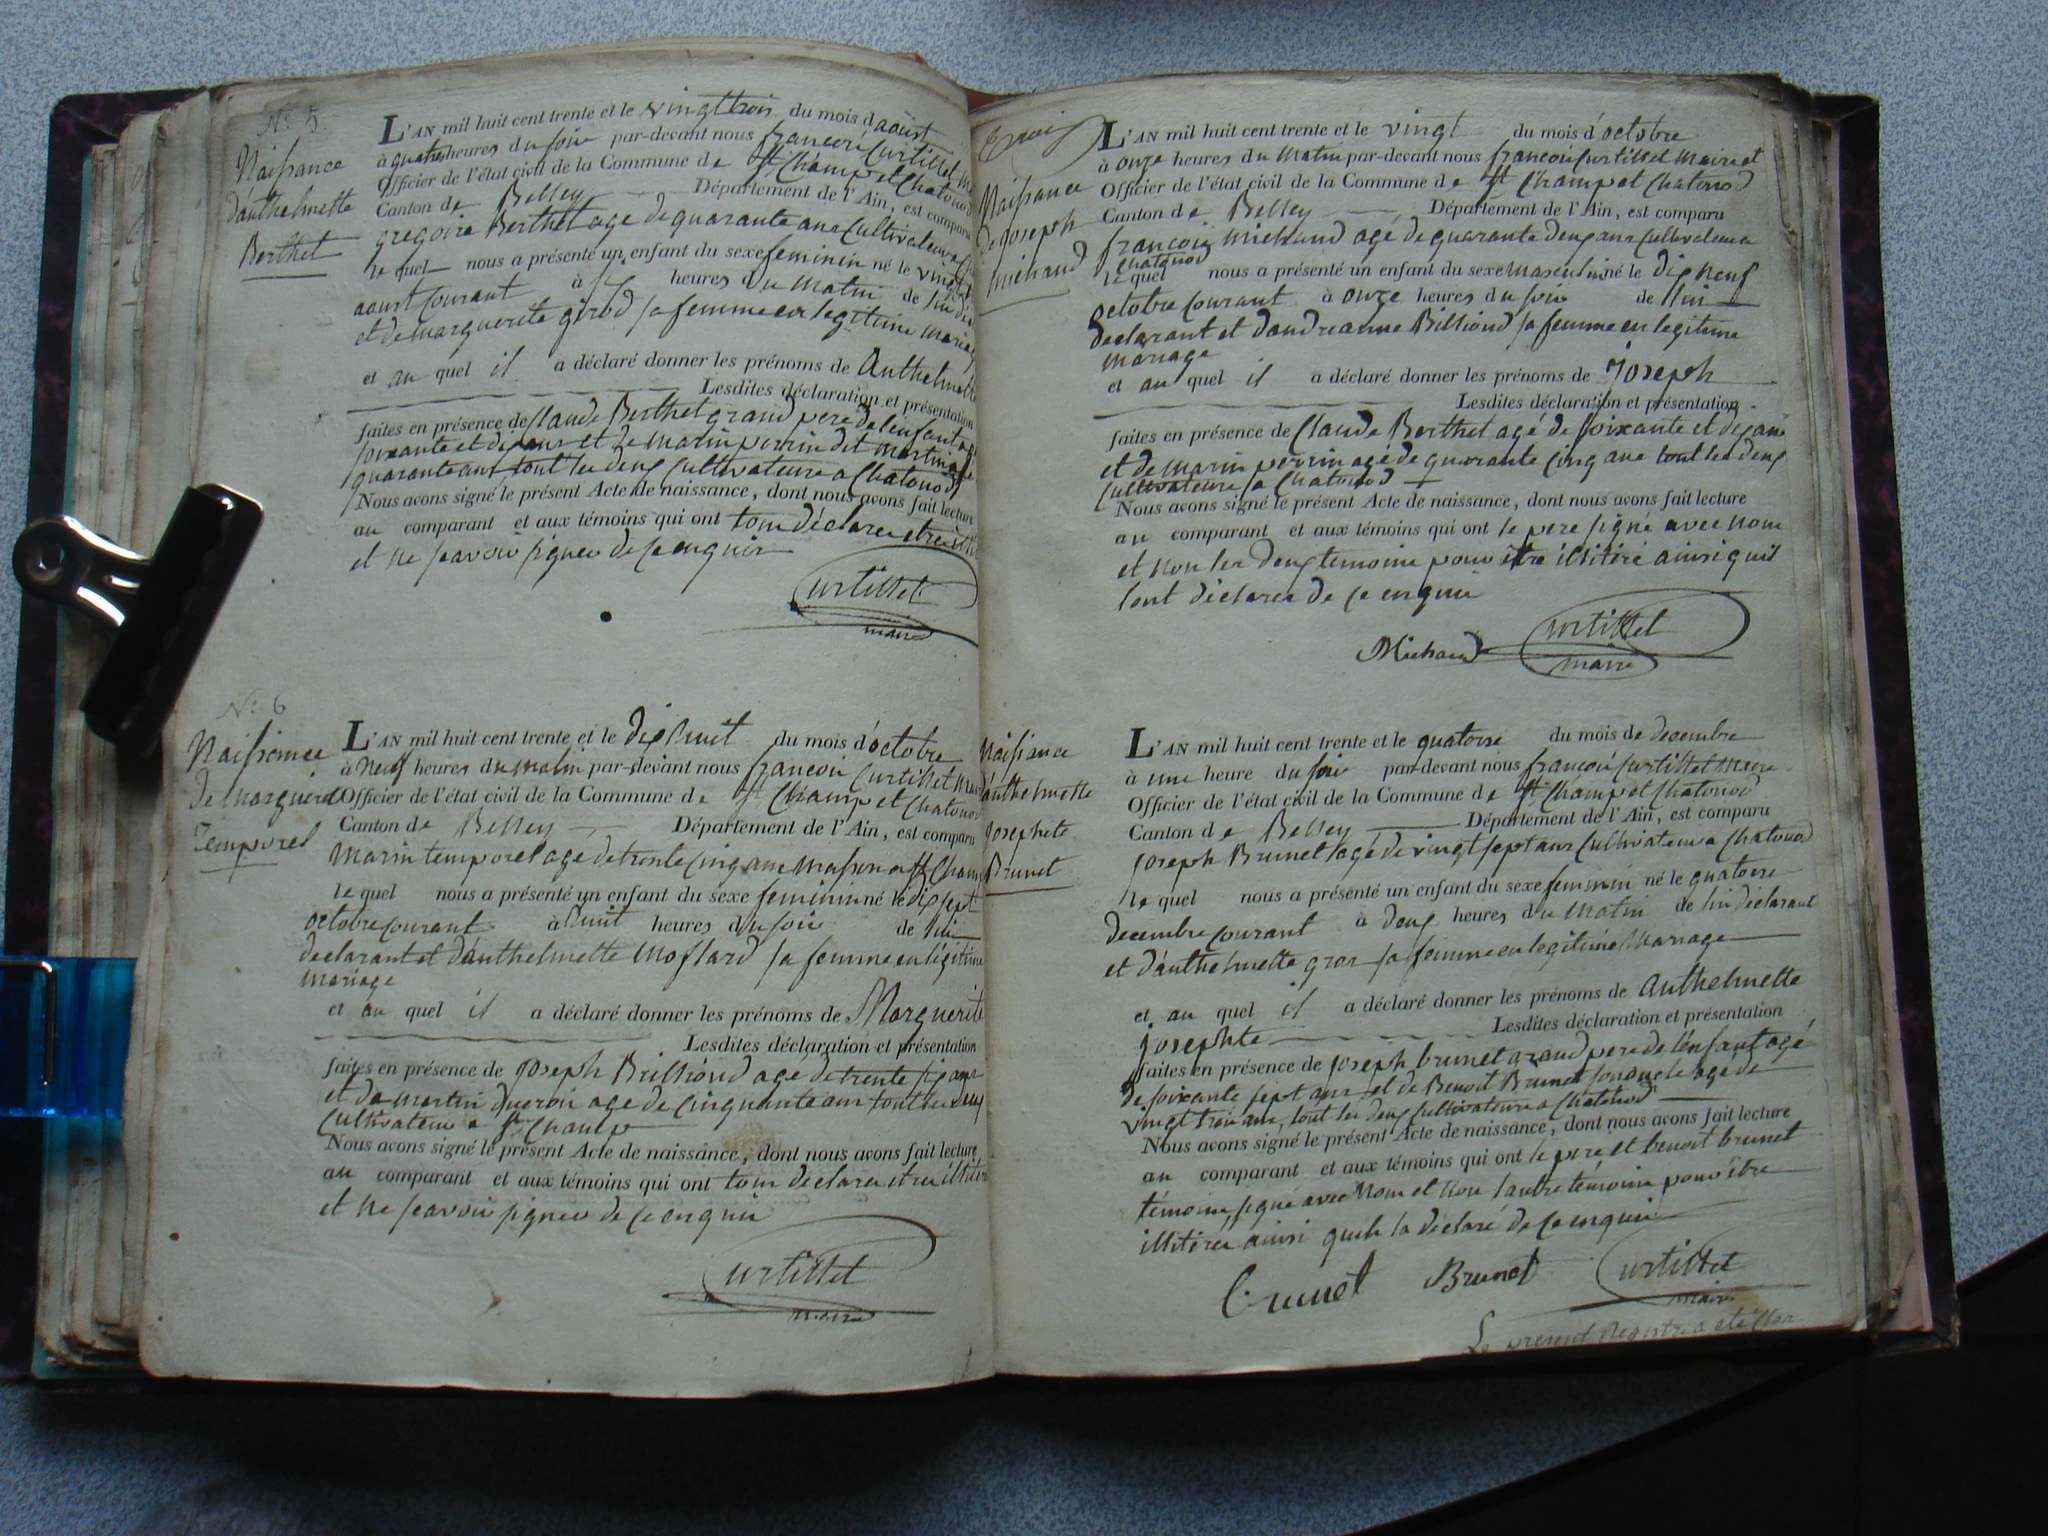 N° 5.
Naissance
d'anthelmette
Berthet
L'AN mil huit cent trente et le vingt trois du mois d'aoust
à quatre heures du soir par-devant nous françois Curtillet
Officier de l'état civil de la Commune de St Champ et Chatonod
Canton de Belley Département de l'Ain, est comparu
gregoire Berthet age de quarante ans Cultivateur
le quel nous a présenté un enfant du sexe feminin né le vingt
aoust Courant à heures du matin de lui
et de marguerite girod sa femme en legitime mariage
et au quel il a déclaré donner les prénoms de Anthelmette
Lesdites déclaration et présentation
faites en présence de Claude Berthet grand pere de l'enfant
soixante et dix ans et de marin perrin dit martin
quarante ans tout les deux Cultivateurs a Chatonod
Nous avons signé le présent Acte de naissance, dont nous avons fait lecture
au comparant et aux témoins qui ont tous déclarer etre
et ne scavoir signer de ce enquis
Curtillet
maire
N° 6
Naissance
de marguerite
Temporel
L'AN mil huit cent trente et le dix huit du mois d'octobre
à neuf heures du matin par-devant nous francois Curtillet
Officier de l'état civil de la Commune de St Champ et Chatonod
Canton de Belley Département de l'Ain, est comparu
Marin temporel age de trente Cinq ans masson a St Champ
le quel nous a présenté un enfant du sexe feminin né le dix sept
octobre courant à huit heures du soir de lui
declarant et d'anthelmette mollard sa femme en légitime
mariage
et au quel il a déclaré donner les prénoms de Marguerite
Lesdites déclaration et présentation
faites en présence de Joseph Billiond age de trente six ans
et de martin age de Cinquante ans tout les deux
Cultivateur a St Champ
Nous avons signé le présent Acte de naissance, dont nous avons fait lecture
au comparant et aux témoins qui ont tous declarer etre
et ne scavoir signer de ce enquis
Curtillet
maire
Naissance
de Joseph
michaud
L'AN mil huit cent trente et le vingt du mois d'octobre
à onze heures du matin par-devant nous françois Curtillet maire et
Officier de l'état civil de la Commune de St Champ et Chatonod
Canton de Belley Département de l'Ain, est comparu
françois michaud agé de quarante deux ans Cultivateur a
Chatonod
le quel nous a présenté un enfant du sexe masculin né le dix neuf
octobre Courant à onze heures du soir de lui
declarant et d'andreanne Billiond sa femme en legitime
mariage
et au quel il a déclaré donner les prénoms de Joseph
Lesdites déclaration et présentation
faites en présence de Claude Berthet agé de soixante et dix ans
et de marin perrin agé de quarante Cinq ans tout les deux
Cultivateurs a Chatonod
Nous avons signé le présent Acte de naissance, dont nous avons fait lecture
au comparant et aux témoins qui ont le pere signé avec nous
et non les deux temoins pour être illitéré ainsi quil
lont déclarer de ce enquis
Michaud
Curtillet
maire
Naissance
d'anthelmette
Josephete
Brunet
L'AN mil huit cent trente et le quatorse du mois de decembre
à une heure du soir par-devant nous françois Curtillet maire
Officier de l'état civil de la Commune de St Champ et Chatonod
Canton de Belley Département de l'Ain, est comparu
joseph Brunet agé de vingt sept ans Cultivateur a Chatonod
le quel nous a présenté un enfant du sexe feminin né le quatorse
decembre Courant à deux heures du matin de lui déclarant
et d'anthelmette gros sa femme en legitime Mariage
et au quel il a déclaré donner les prénoms de Anthelmette
josephte
Lesdites déclaration et présentation
faites en présence de joseph brunet grand pere de l'enfant agé
de soixante sept ans et de Benoit Brunet son oncle age de
vingt trois ans, tout les deux Cultivateurs a Chatonod
Nous avons signé le présent Acte de naissance, dont nous avons fait lecture
au comparant et aux témoins qui ont le pere et benoit brunet
témoins signé avec Nous et non l'autre témoins pour être
illitérer ainsi quil la déclaré de ce enquis
Brunet Brunet Curtillet
maire
Le present Registre a été Clos